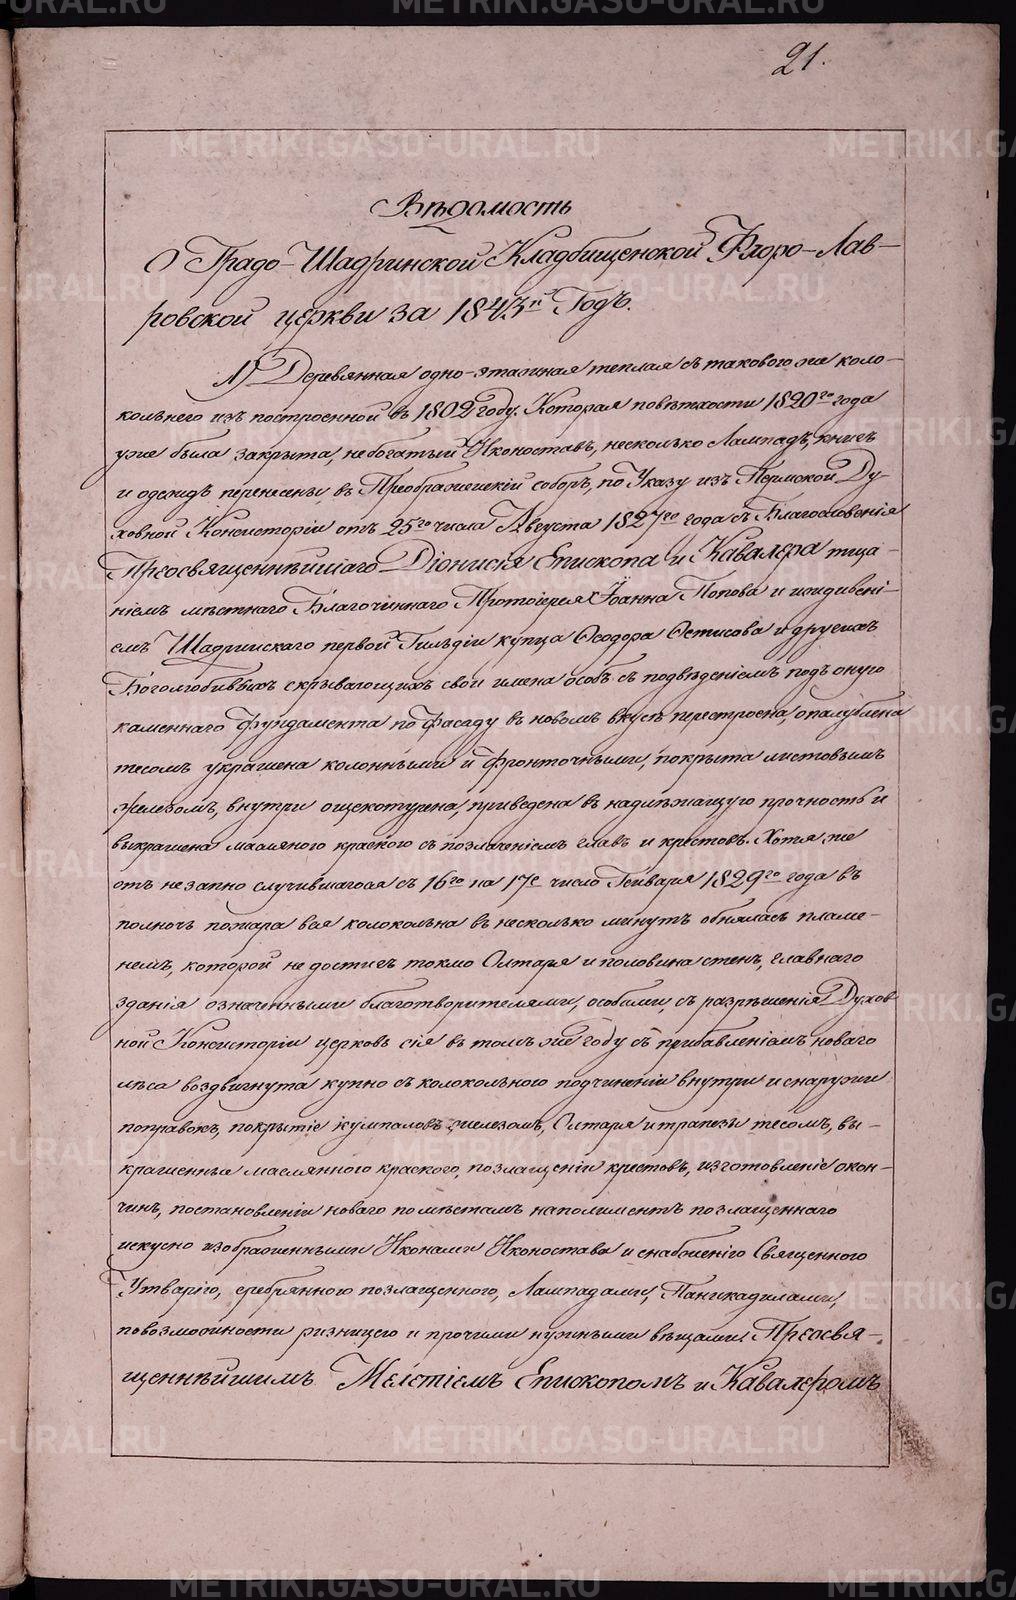 21.
Вѣдомость
О Градо-Шадринской Кладбищенской Флоро-Лав-
ровской церкви за 1843й Годъ.
1) Деревянная одно-этажная теплая съ таковою же коло-
кольнею изъ построенной въ 1802 году. Которая поветхости 1820го года
уже была закрыта, небогатый Иконостасъ, несколько Лампадъ, книгъ
и одеждъ перенесены въ Преображенскій соборъ, по Указу изъ Пермской Ду
ховной Консисторіи отъ 25го числа Августа 1827го года съ Благословенія
Преосвященнѣйшаго Діонисія Епископа и Кавалера тща-
ніемъ мѣстнаго Благочиннаго Протоіерея Іоанна Попова и иждивені-
емъ Шадринскаго первой Гильдіи купца Ѳеодора Ѳетисова и другихъ
Боголюбивыхъ скрывающихъ свои имена особъ съ подвѣденіемъ подъ оную
каменнаго фундамента по Фасаду въ новомъ вкусѣ перестроена, опалублена
тесомъ украшена колоннами и фронтонными, покрыта листовымъ
железомъ, внутри ощекотурена, приведена въ надлежащую прочность и
выкрашена масляною краскою съ позлаченіемъ главъ и крестовъ. Хотя же
отъ незапно случившагося съ 16го на 17е число Генваря 1829го года въ
полночь пожара вся колокольна въ несколько минутъ обнялась пламе-
немъ, которой не достигъ токмо Олтаря и половина стенъ, главнаго
зданія означенными благотворителями, особами, съ разрѣшенія Духов
ной Консисторіи церковь сія въ томъ же году съ прибавленіемъ новаго
лѣса воздвигнута купно съ колокольнею подчиненіи внутри и снаружи
поправокъ, покрытіе куполовъ железомъ, Олтаря и трапезы тесомъ, вы-
крашенные маслянною краскою, позлащеніи крестовъ, изготовленіе окон-
чинъ, постановленіи новаго по мѣстамъ наполиментъ позлащеннаго
искусно изображенными Иконами Иконостаса и снабженіе Священною
Утварію, сребрянною позлащенною, Лампадами, Паникадилами,
по возможности ризницею и прочими нужными вещами. Преосвя-
щеннѣйшимъ Мелетіемъ Епископомъ и Кавалеромъ
METRIKI.GASO-URAL.RU